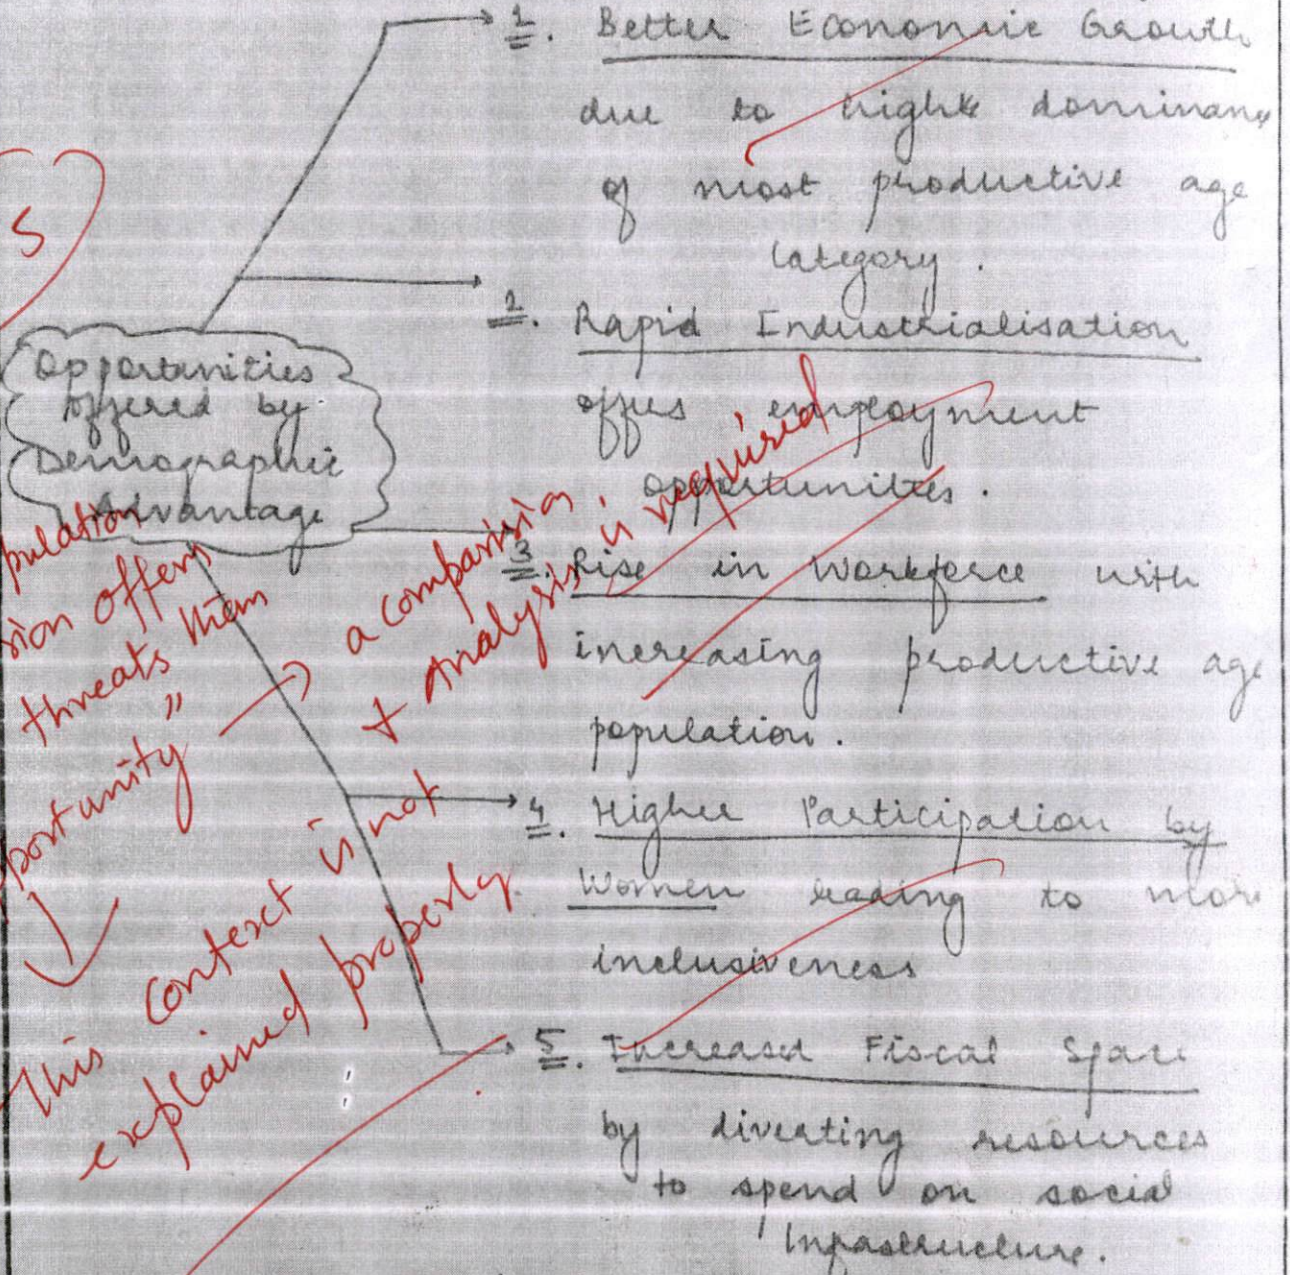 1. Better Economic Growth
due to high dominance
of most productive age
category.
2. Rapid Industrialisation
offers employment
opportunities.
3. Rise in Workforce with
increasing productive age
population.
4. Higher Participation by
Women leading to more
inclusiveness
5. Increased Fiscal Space
by diverting resources
to spend on social
Infrastructure.
Opportunities
offered by
Demographic
Advantage
5
pulation
sion offers
threats than
portunity"
a comparision
& Analysis is required
This context is not
explained properly.